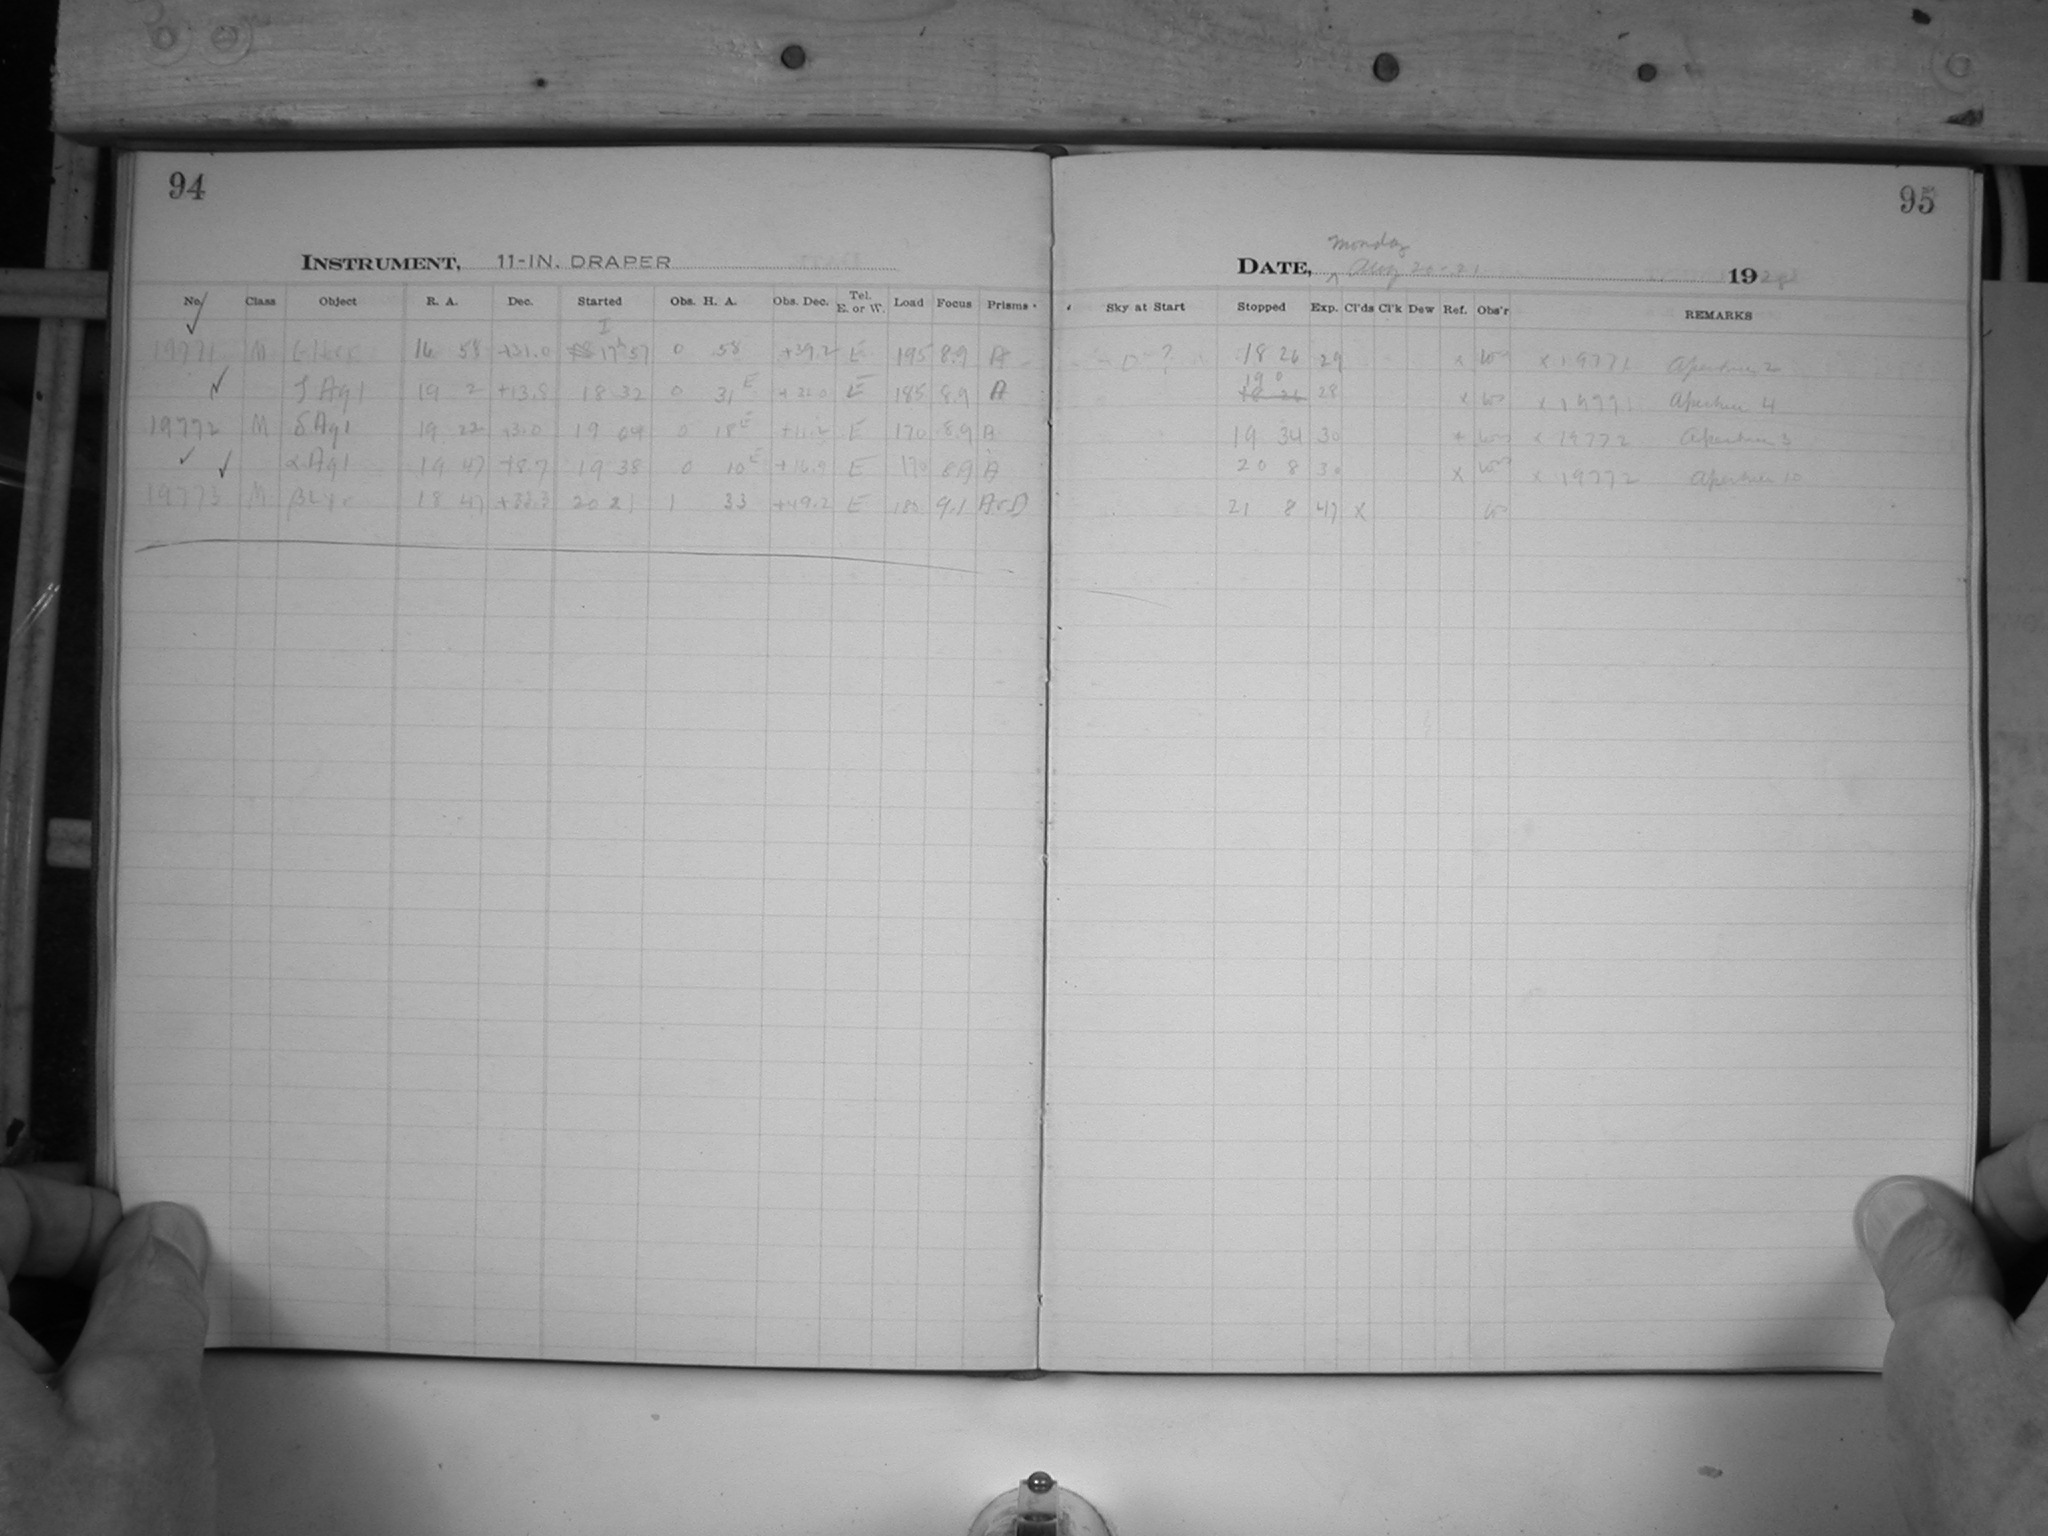 94
INSTRUMENT, 11-IN. DRAPER
No. Class Object R. A. Dec. Started Obs. H. A. Obs. Dec. Tel. E. or W. Load Focus Prisms
I
19771 M 16 58 +31.0 17h 57 0 58 +39.2 E 195 8.9 A
ζ Aql 19 2 +13. 18 32 0 31 E E 185 8.9 A
19772 M δ Aql 19 22 +3.0 19 04 0 18 E +11.2 E 170 8.9 A
α Aql 19 47 +8.7 19 38 0 10 E +16.9 E 170 8.9 A
19773 M β Lyr 18 47 +33.3 20 21 1 33 +49.2 E 9.1
95
Monday
DATE, Aug 20-21 1928
Sky at Start Stopped Exp. Cl'ds Cl'k Dew Ref. Obs'r REMARKS
? 18 26 29 x x 19771 Aperture 2
19 0 18 26 28 x x 19771 Aperture 4
19 34 30 x x 19772 Aperture
20 8 30 x x 19772 Aperture 10
21 8 47 x